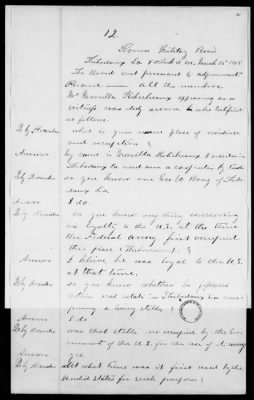 12.
Thibodaux La 8 o'clock A.M. March 15th
The Board met pursuant to adjournment
Present — all the members.
Mr Robicheaux appearing as a
witness was duly sworn & who testified
as follows.
Q by Recorder what is your name place of residence
and occupation?
Answer My name is Robicheaux I reside in
Thibodaux La and am a carpenter by trade
Q by Recorder do you know one Geo
La
Answer I do
Q by Recorder do you know anything concerning
his loyalty to the U.S. at the time
the Federal Army first occupied
this place (Thibodaux)?
Answer I believe he was loyal to the U.S.
at that time.
Q by Recorder do you know whether he possesses
certain real estate in Thibodaux La
a livery stable?
Answer I do
Q by Recorder was that stable occupied by the Gov-
ernment of the U.S. for the use of its army
Answer Yes.
Q by Recorder At what time was it first used by the
United States for such purposes?